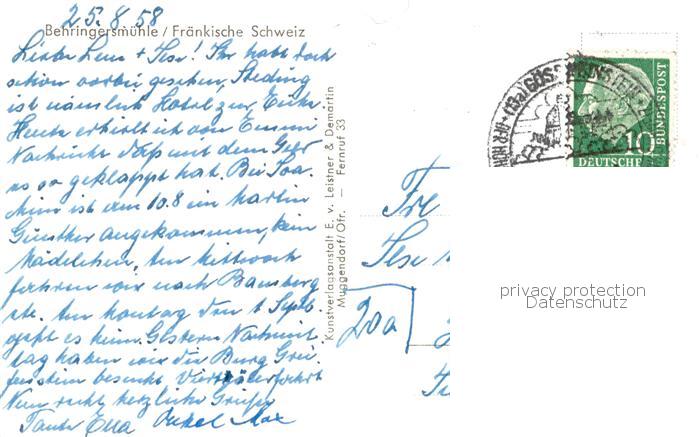 25.8.58
Behringersmühle / Fränkische Schweiz
Liebe Lene + Ilse! Ihr habt doch
schon vorbei gesehen,
ist nämlich Hotel zur
Heute erhielt ich von Emmi
Nachricht daß mit dem
es so geklappt hat. Bei
ist am 10.8 ein Martin
Günther angekommen, kein
Mädelchen. Am Mittwoch
fahren wir nach Bamberg
etc. Am Montag den 1. Sept.
geht es heim. Gestern Nachmit
tag haben wir die Burg Grei
fenstein besucht. Viertälerfahrt
Nun recht herzliche Grüße
Tante Ella Onkel Max
Kunstverlagsanstalt E. v. Leistner & Demartin
Muggendorf/Ofr. — Fernruf 33
Fr
Ilse
20a
(13a) GÖSSWEINSTEIN
10
DEUTSCHE
BUNDESPOST
privacy protection
Datenschutz